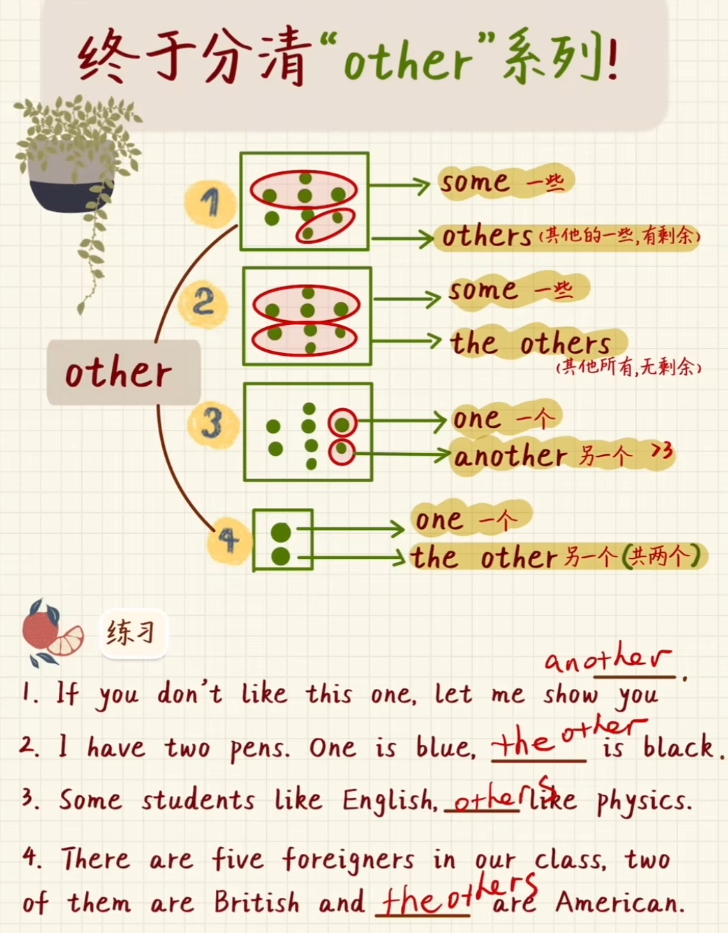 终于分清“other”系列!
other
1
some 一些
others(其他的一些,有剩余)
2
some 一些
the others
(其他所有,无剩余)
3
one 一个
another 另一个 >3
4
one 一个
the other 另一个(共两个)
练习
another.
1. If you don't like this one, let me show you
2. I have two pens. One is blue, the other is black.
3. Some students like English, others like physics.
4. There are five foreigners in our class, two
of them are British and the others are American.